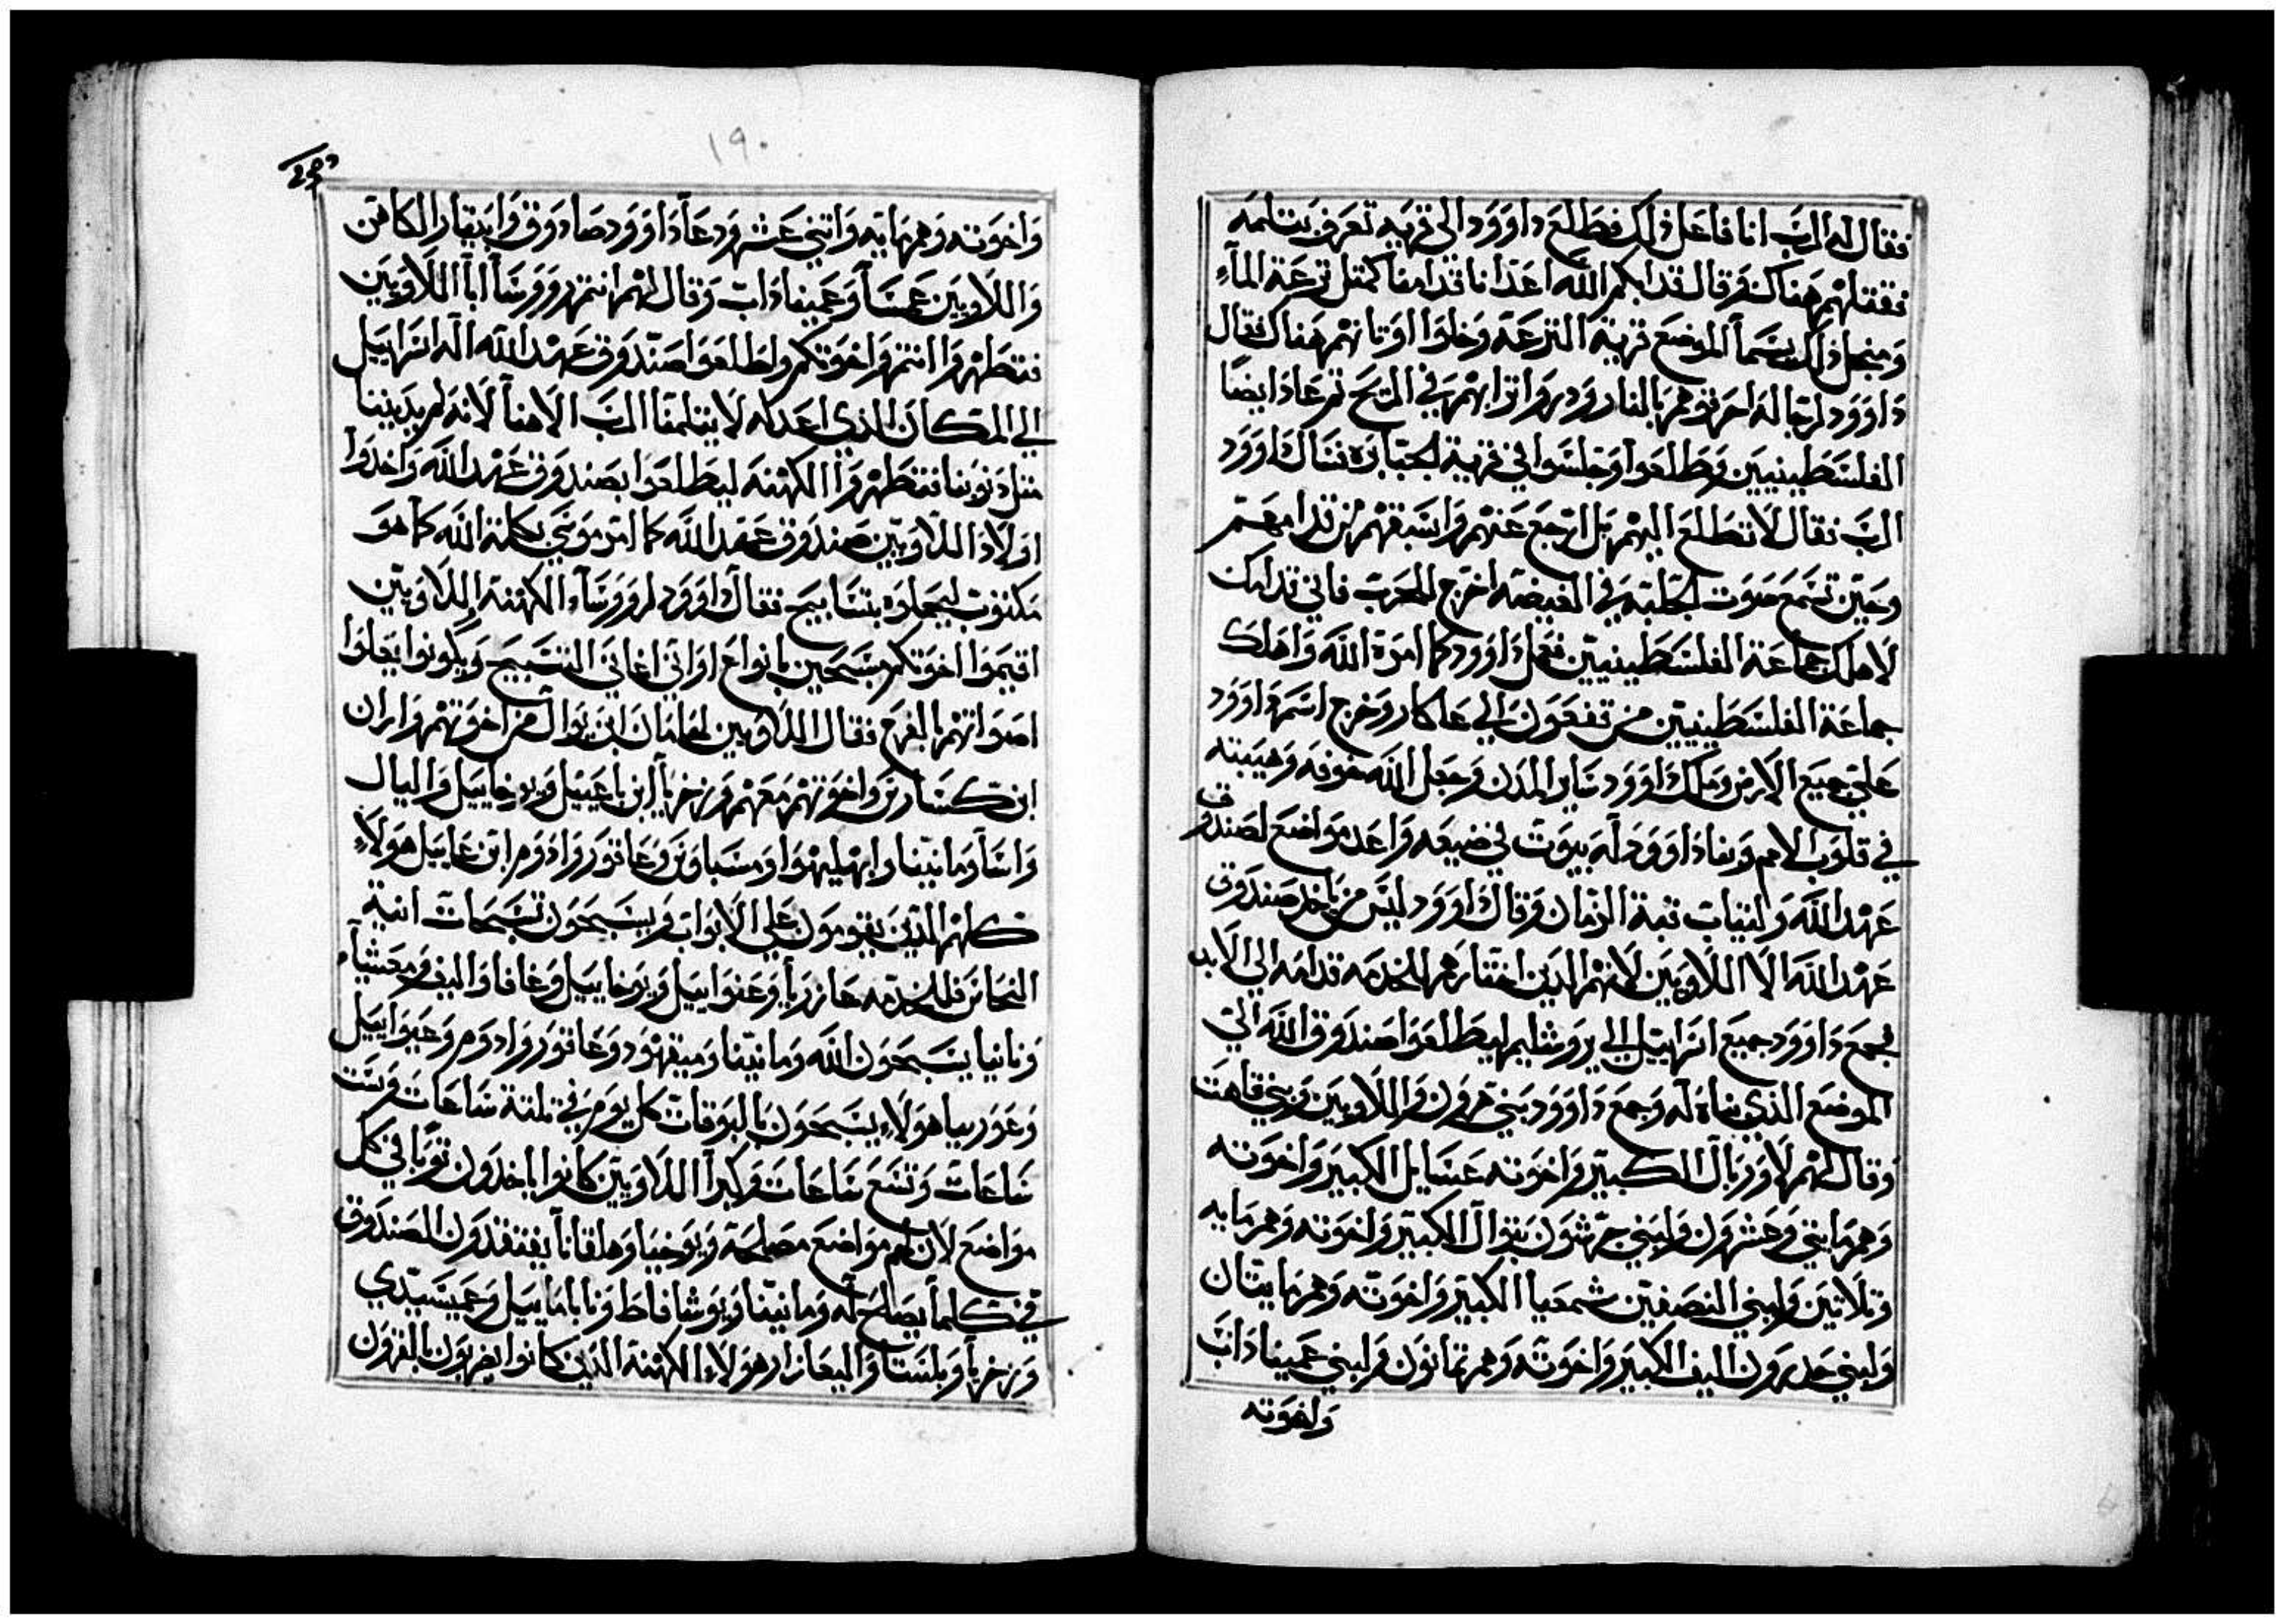 فقال له الرب انا فاعل ذلك فطلع داوود الى قريه تعرف بتلمه
فقتلهم هناك وقال قدابكم الله اعدانا قدامنا كمتل ترعة المآء
ومنجل ذلك يسما الموضع قرية الترعة وخلوا اوتانهم هناك فقال
داوود لرجاله احرقوهم بالنار ودروا ترابهم في الريح تم عادايضا
الفلسطينيين وطلعوا وجلسوا في قرية الجبابرة فسال داوود
الرب فقال لا تطلع اليهم بل ارجع عنهم واسبقهم من قدامهم
وحين تسمع صوت الجلبه في الغيضه اخرج للحرب فاني قدامك
لاهلك جماعة الفلسطينيين ففعل داوود كما امره الله واهلك
جماعة الفلسطينيين من تفعون الي عاكار وخرج اسم داوود
على جميع الارض وملك داوود ساير المدن وجعل الله خوفه وهيبته
في قلوب الامم وبنا داوود له بيوت في ضيعه واعد مواضع لصندوق
عهد الله ولتبات قبة الزمان وقال داوود ليس من ياخد صندوق
عهد الله الا اللاويين لانهم الدين اختارهم للخدمه قدامه الي الابد
فجمع داوود جميع اسراييل الي يروشليم ليطلعوا صندوق الله الى
الموضع الذي بناه له وجمع داوود بني هرون واللاويين وبني قاهت
وقال لهم لاوريال الكبير واخوته عسايل الكبير واخوته
وهم مايتي وعشرون ولبني جرشون يوال الكبير واخوته وهم مايه
وتلاتين ولبني اليصفين شمعيا الكبير واخوته وهم مايتان
ولبني حدرون اليف الكبير واخوته وهم تمانون ولبني عميناداب
واخوته
١٩٠
واخوته وهم مايه واتني عشر ودعا داوود صادوق وابيتار الكاهن
واللاويين عسا وعميناداب وقال لهم انتم روروسا ابا اللاويين
فتطهروا انتم واخوتكم واطلعوا صندوق عهد الله اله اسراييل
الي المكان الذي اعد له لا يتلمنا الرب الاهنا لانه لم يدينا
متل دنوبنا فتطهروا الكهنه ليطلعوا بصندوق عهد الله واخدوا
اولاد اللاويين صندوق عهد الله كما امر موسي بكلمة الله كما هو
مكتوب ليحملوه بتسابيح فقال داوود لروسآء الكهنة اللاويين
اقيموا اخوتكم مسبحين بانواع اواني اغاني التسبيح ويكونوا يعلوا
اصواتهم بالفرح فقال اللاويين لهامان ابن يوال من اخوتهم واران
ابن كسارن واخوتهم معهم وزخريا ابن ياعييل ويوخاييل واليال
واسا ومانيتا وابهليهوا ومسباون وعاقور وادوم ابن عاييل هولاء
كلهم الدين يقومون علي الابواب ويسبحون تسبحات انية
النحاس للخدمه عازريا وعنواييل ويوخاييل وغافا واليف ومحشيا
ونانيا يسبحون الله ومانيتا وميقهود وعاقور وادوم وعبواييل
وعوربيا هولاء يسبحون بالبوقات كل يوم في تلتة ساعات وست
ساعات وتسع ساعات وكبرا اللاويين كانوا ياخدون توبا في كل
مواضع لان لهم مواضع مصلحة ويوخيا وهلقانا يفتقدون الصندوق
في كلما يصلح له ومانيتا ويوشافاط وناباماييل وعميسيدي
وزخريا وبلستا واليعازار هولاء الكهنة الدين كانوا يضربون بالقرون